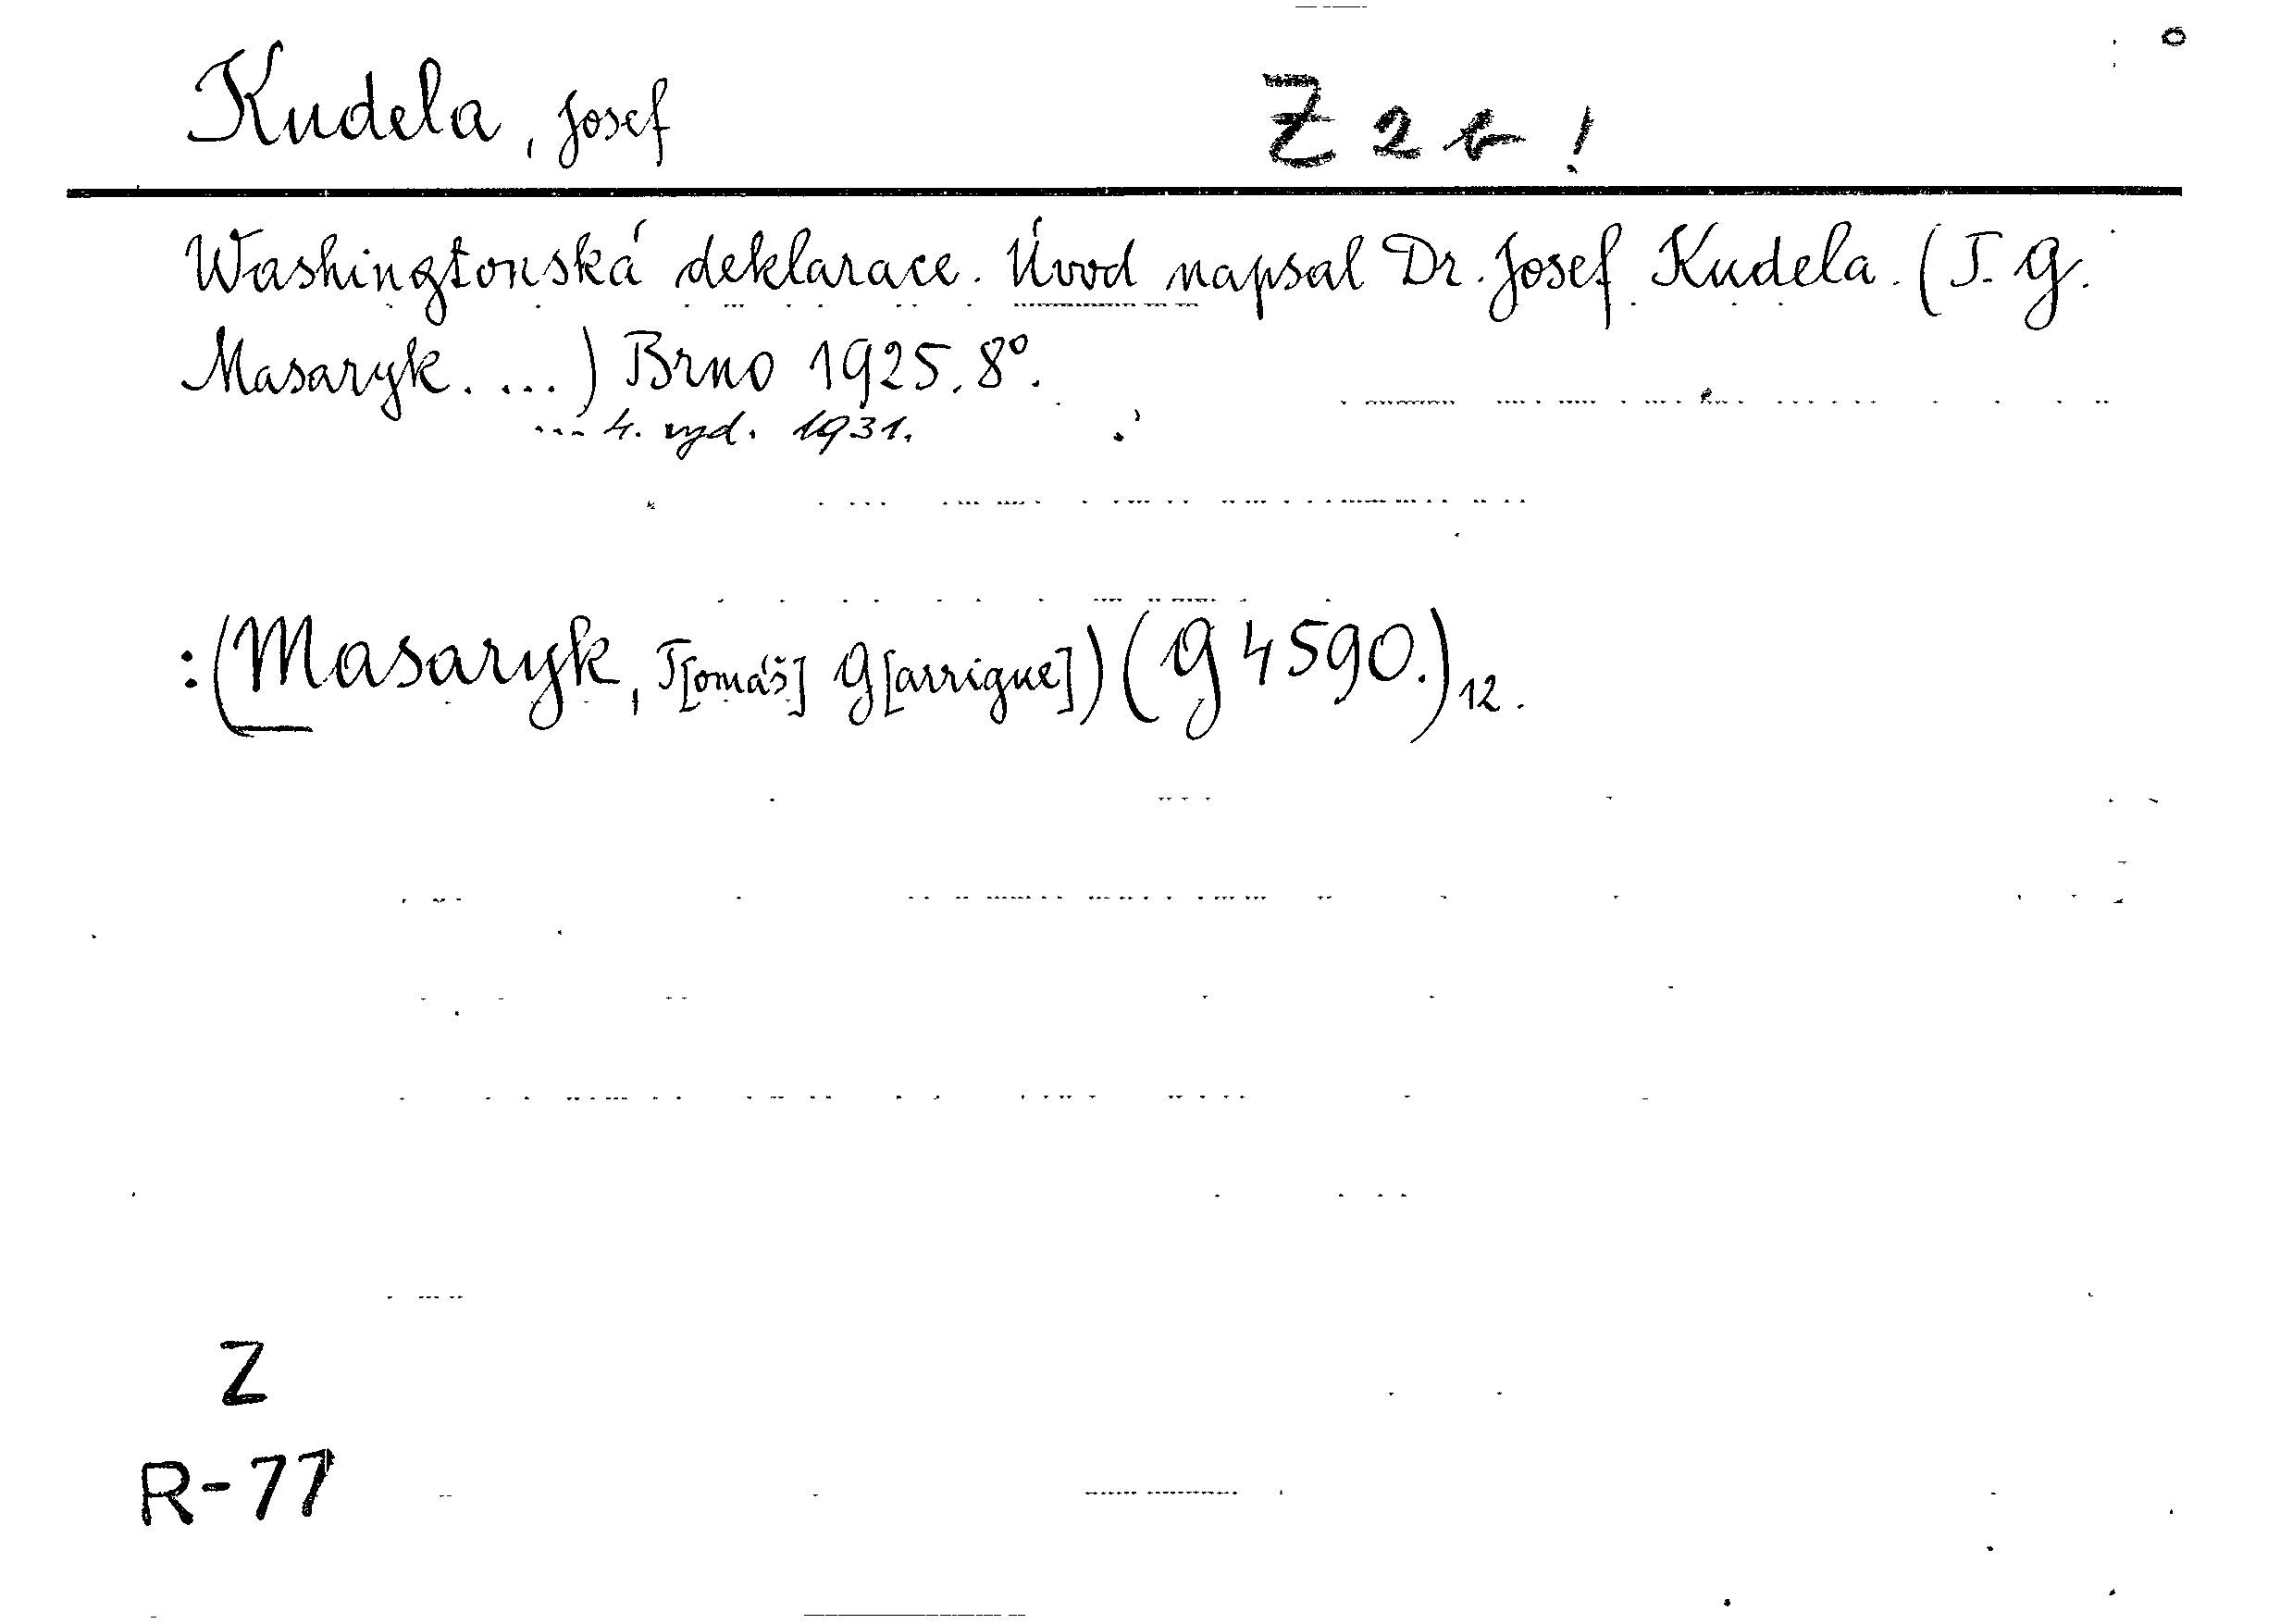 Kudela, Josef
Z 2 b !
Washingtonská deklarace. Úvod napsal Dr. Josef Kudela. (T. G.
Masaryk. ...) Brno 1925. 8°.
--- 4. vyd. 1931.
:(Masaryk, T[omáš] G[arrigue]) (G 4590.) 12.
Z
R-77